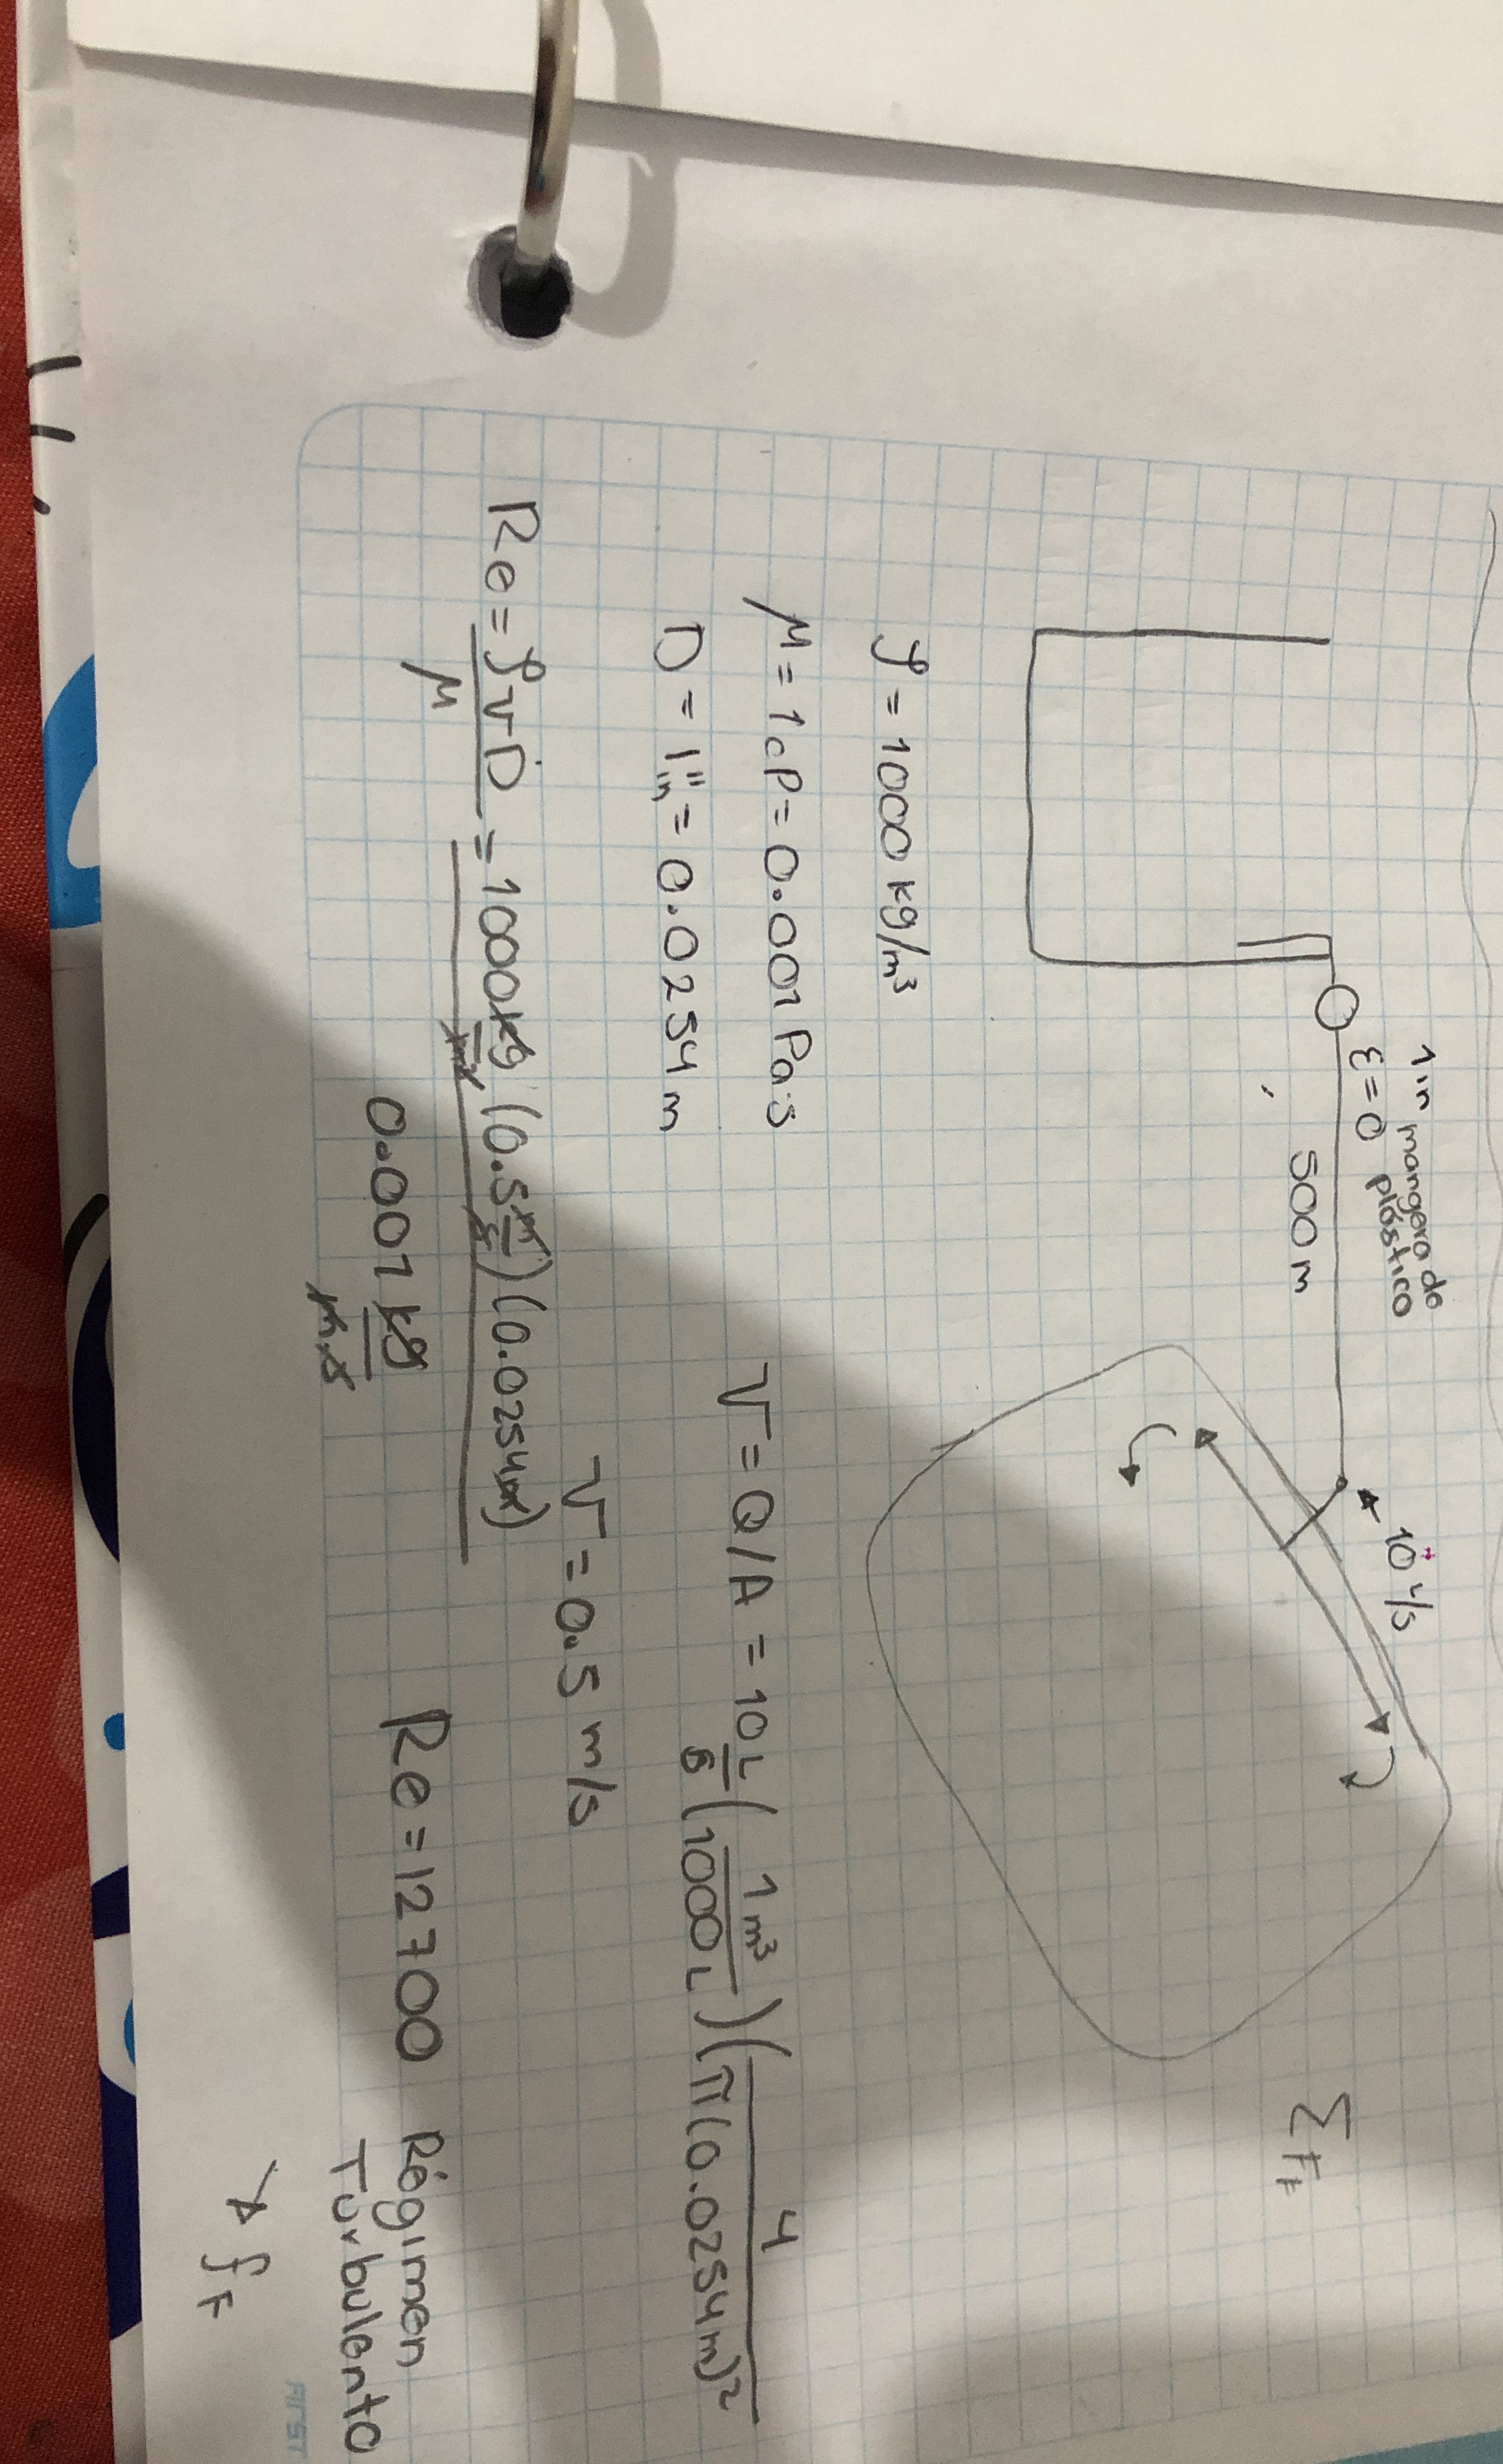 1 in mangera de
ε=0 plástico
500 m
10 L/s
ΣFf
ρ = 1000 kg/m³
μ = 1cP = 0.001 Pa·s
D = 1" in = 0.0254 m
v = Q/A = 10 L/s (1 m³/1000 L) (4/π(0.0254m)²)
v = 0.5 m/s
Re = ρvD/μ = 1000 kg/m³ (0.5 m/s) (0.0254m) / 0.001 kg/m·s
Re = 12700 Régimen
Turbulento
→ fF